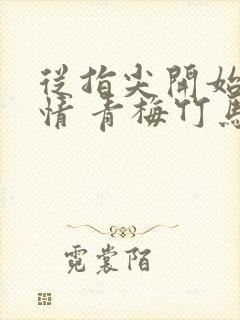 從指尖開始
情 青梅竹馬
霓裳陌